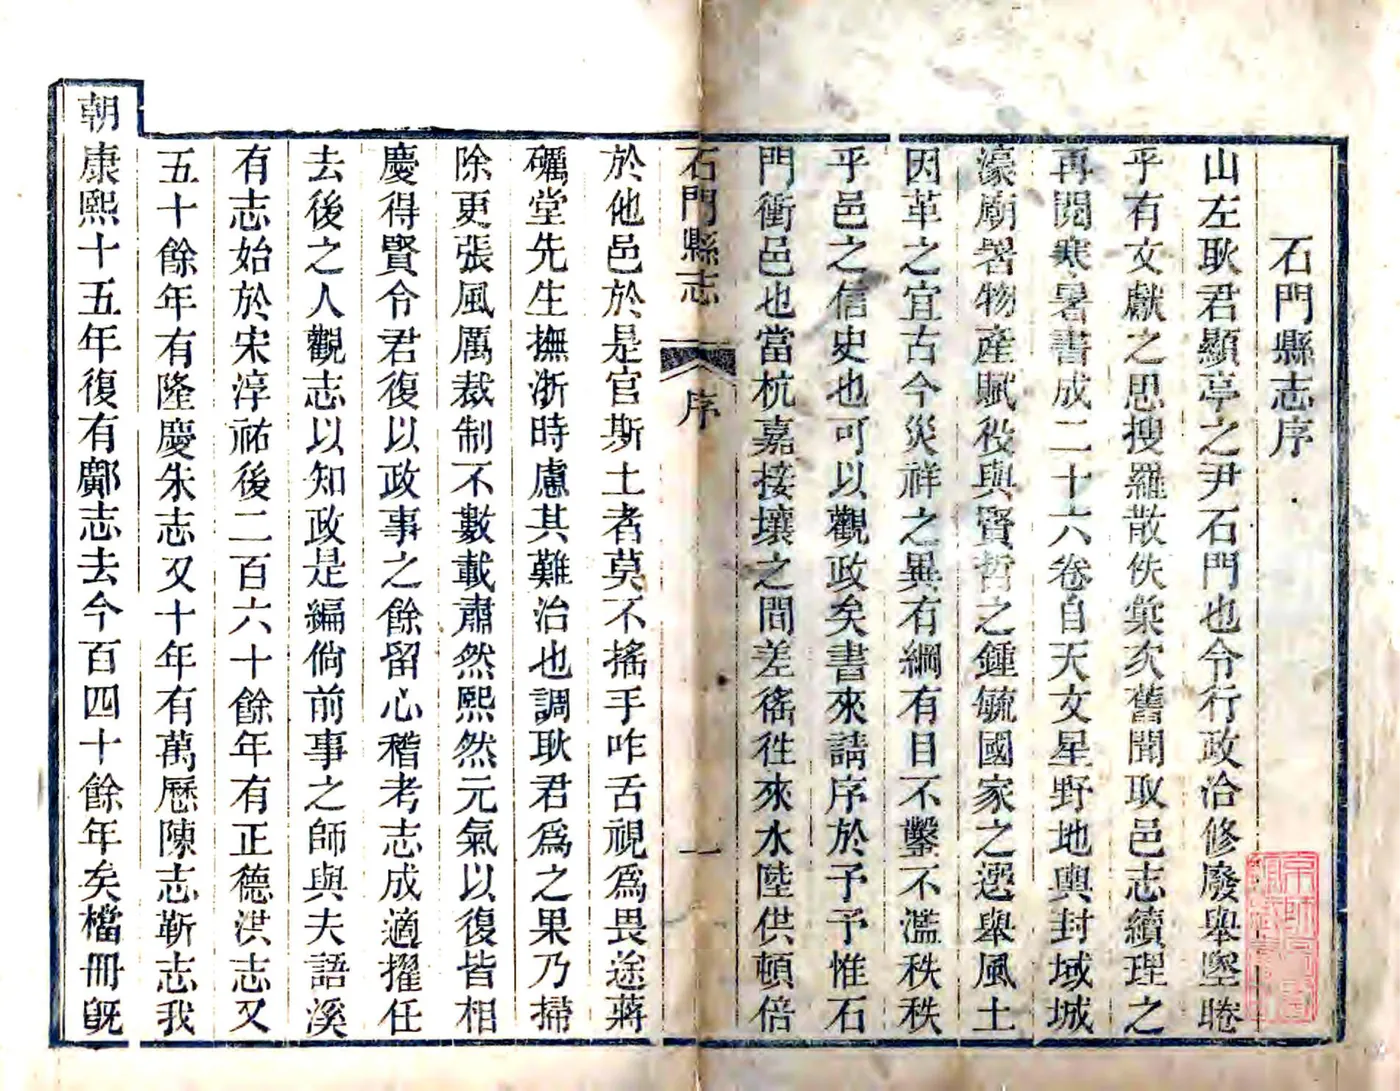 石門縣志序
山左耿君顯亭之尹石門也令行政洽修廢舉墜睠
乎有文獻之思搜羅散佚彚次舊聞取邑志續理之
再閱寒暑書成二十六卷自天文星野地輿封域城
濠廟署物產賦役與賢哲之鍾毓國家之選舉風土
因革之宜古今災祥之異有綱有目不鑿不濫秩秩
乎邑之信史也可以觀政矣書來請序於予予惟石
門衝邑也當杭嘉接壤之間差徭徃來水陸供頓倍
石門縣志 序 一
於他邑於是官斯土者莫不搖手咋舌視爲畏途蔣
礪堂先生撫浙時慮其難治也調耿君爲之果乃掃
除更張風厲裁制不數載肅然熙然元氣以復皆相
慶得賢令君復以政事之餘留心稽考志成適擢任
去後之人觀志以知政是編倘前事之師與夫語溪
有志始於宋淳祐後二百六十餘年有正德洪志又
五十餘年有隆慶朱志又十年有萬曆陳志靳志我
朝康熙十五年復有鄺志去今百四十餘年矣檔冊旣